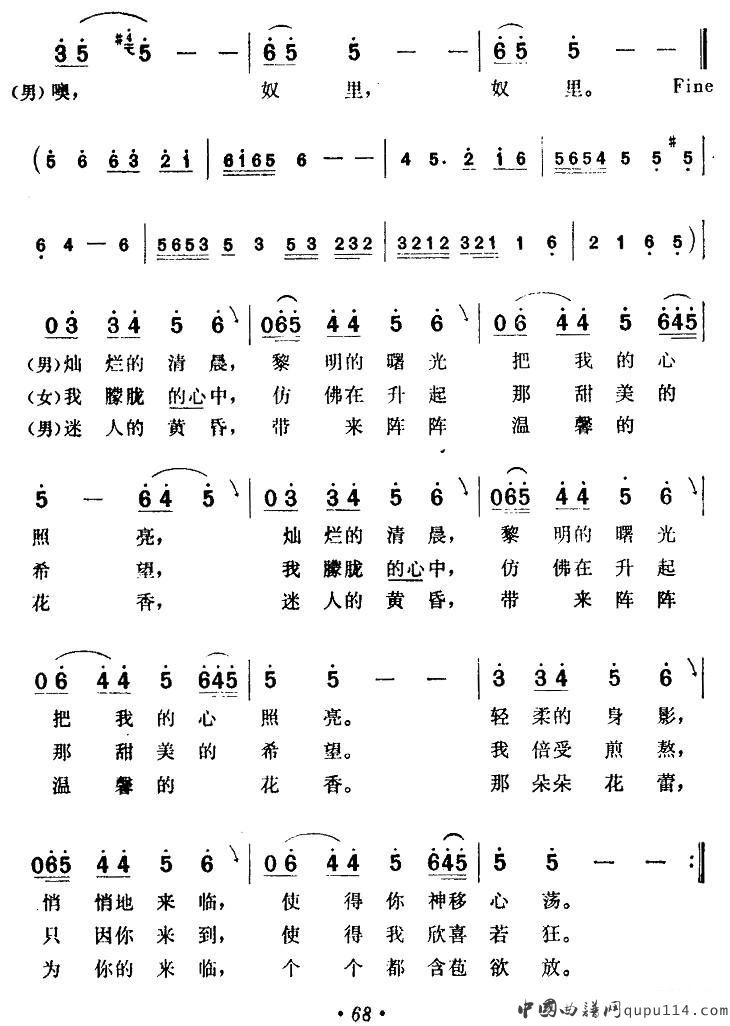 3 5 #4 5 — — | 6 5 5 — | 6 5 5 — — ‖
(男)噢， 奴 里， 奴 里。 Fine
(5 6 6 3 2 1 | 6165 6 — — | 4 5. 2 1 6 | 5654 5 5 #5 |
6 4 — 6 | 5653 5 3 53 232 | 3212 321 1 6 | 2 1 6 5) |
03 34 5 6 | 065 44 5 6 | 06 44 5 645 |
(男)灿 烂的 清 晨， 黎 明的 曙 光 把 我 的 心
(女)我 朦胧 的心中， 仿 佛在 升 起 那 甜 美 的
(男)迷 人的 黄 昏， 带 来 阵 阵 温 馨 的
5 — 64 5 | 03 34 5 6 | 065 44 5 6 |
照 亮， 灿 烂的 清 晨， 黎 明的 曙 光
希 望， 我 朦胧 的心中， 仿 佛在 升 起
花 香， 迷 人的 黄 昏， 带 来 阵 阵
06 44 5 645 | 5 5 — — | 3 34 5 6 |
把 我 的 心 照 亮。 轻 柔的 身 影，
那 甜 美 的 希 望。 我 倍受 煎 熬，
温 馨 的 花 香。 那 朵朵 花 蕾，
065 44 5 6 | 06 44 5 645 | 5 5 — — :‖
悄 悄地 来 临， 使 得 你 神移 心 荡。
只 因你 来 到， 使 得 我 欣喜 若 狂。
为 你的 来 临， 个 个 都 含苞 欲 放。
· 68 ·
中國曲譜网qupu114.com